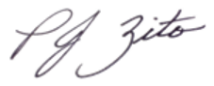 PJ Zito